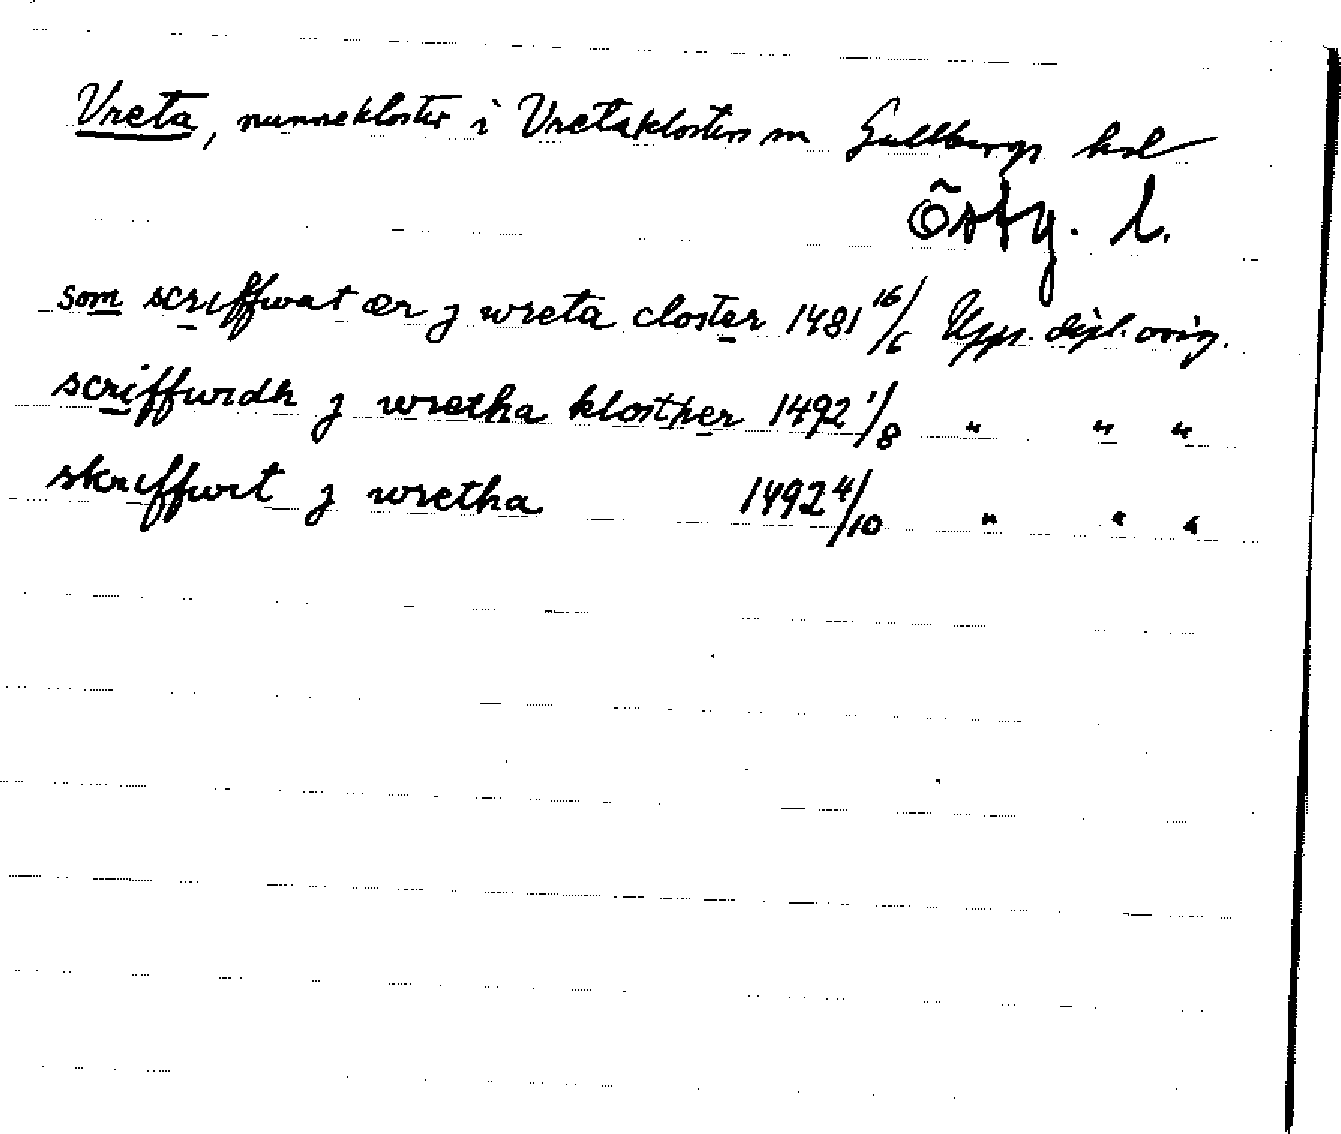 Vreta, nunnekloster i Vretaklosters sn Gullbergs hd
Östg. l.
som scriffwat ær j wreta closter 1481 16/6 Upps. dipl. orig.
scriffwidh j wretha klosther 1492 1/8 " " "
skriffwit j wretha 1492 4/10 " " "